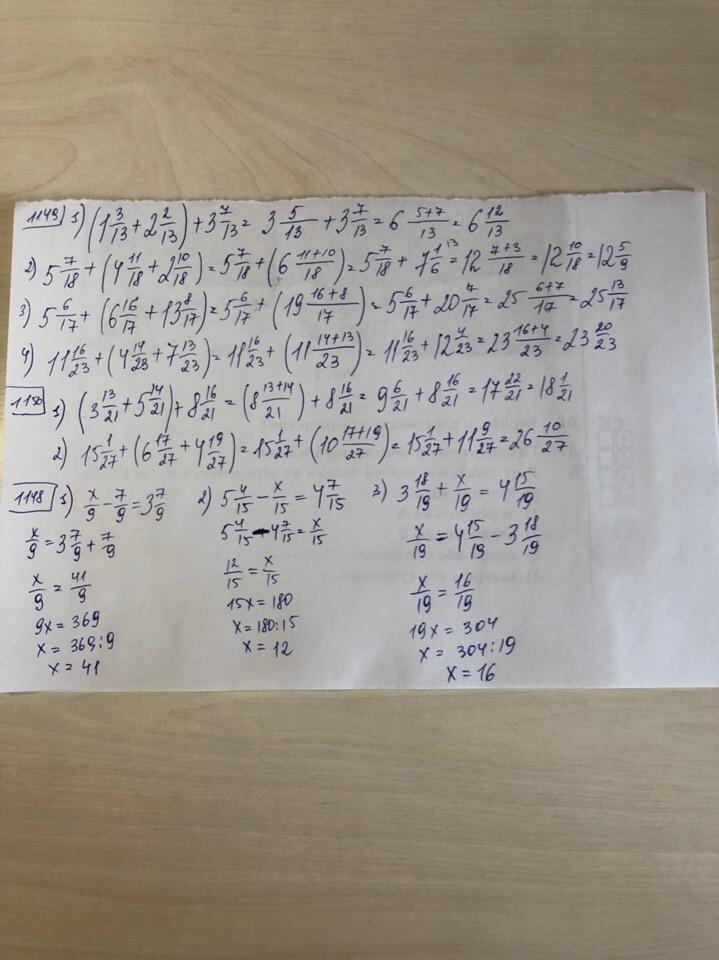 1149 1) (1 3/13 + 2 2/13) + 3 7/13 = 3 5/13 + 3 7/13 = 6 5+7/13 = 6 12/13
2) 5 7/18 + (4 11/18 + 2 10/18) = 5 7/18 + (6 11+10/18) = 5 7/18 + 7 1/6 = 12 7+3/18 = 12 10/18 = 12 5/9
3) 5 6/17 + (6 16/17 + 13 8/17) = 5 6/17 + (19 16+8/17) = 5 6/17 + 20 7/17 = 25 6+7/17 = 25 13/17
4) 11 16/23 + (4 14/23 + 7 13/23) = 11 16/23 + (11 14+13/23) = 11 16/23 + 12 4/23 = 23 16+4/23 = 23 20/23
1150 1) (3 13/21 + 5 14/21) + 8 16/21 = (8 13+14/21) + 8 16/21 = 9 6/21 + 8 16/21 = 17 22/21 = 18 1/21
2) 15 1/27 + (6 17/27 + 4 19/27) = 15 1/27 + (10 17+19/27) = 15 1/27 + 11 9/27 = 26 10/27
1148 1) x/9 - 7/9 = 3 7/9
x/9 = 3 7/9 + 7/9
x/9 = 41/9
9x = 369
x = 369:9
x = 41
2) 5 4/15 - x/15 = 4 7/15
5 4/15 - 4 7/15 = x/15
12/15 = x/15
15x = 180
x = 180:15
x = 12
3) 3 18/19 + x/19 = 4 15/19
x/19 = 4 15/19 - 3 18/19
x/19 = 16/19
19x = 304
x = 304:19
x = 16